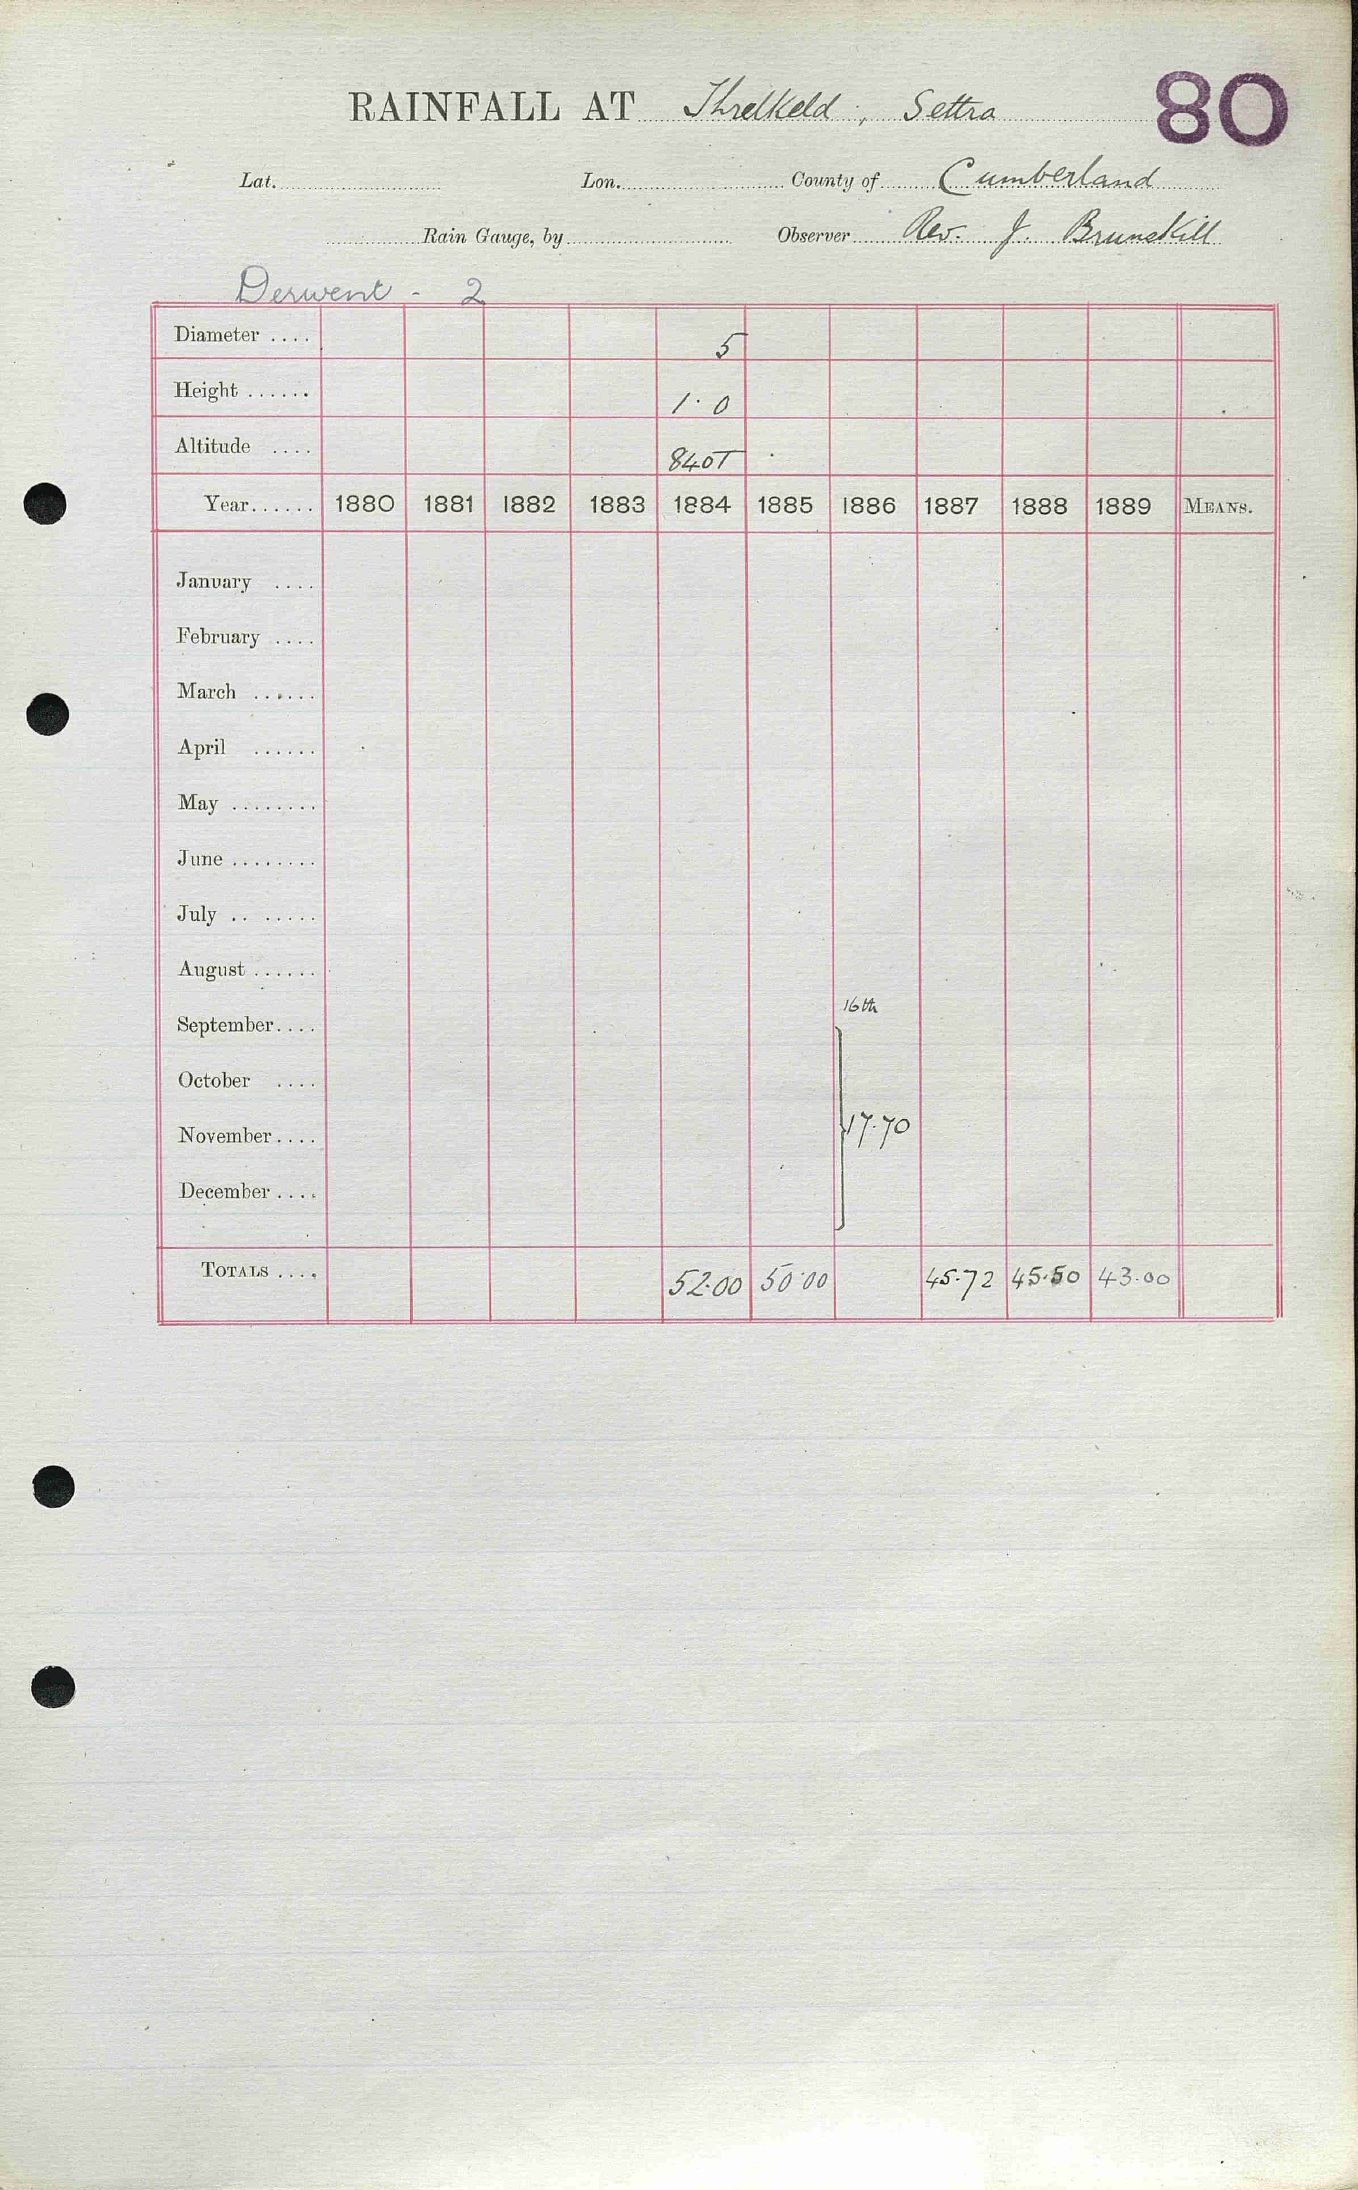 RAINFALL AT Threlkeld, Settra 80
Lat. Lon. County of Cumberland
Rain Gauge, by Observer Rev. J. Brunskill
Derwent - 2
Diameter .... 5
Height ...... 1.0
Altitude .... 840T
Year...... 1880 1881 1882 1883 1884 1885 1886 1887 1888 1889 MEANS.
January ....
February ....
March ......
April ......
May ........
June ........
July .. .....
August ......
16th
September....
October ....
November.... 17.70
December ....
TOTALS .... 52.00 50.00 45.72 45.50 43.00